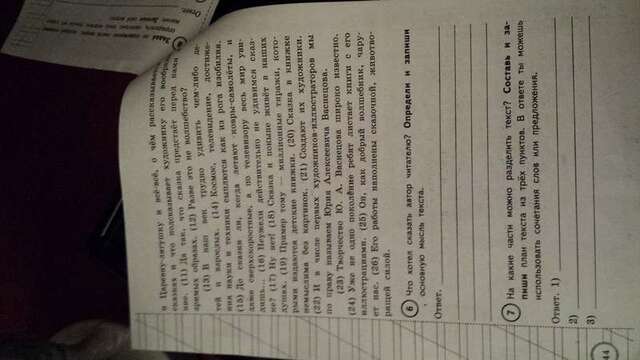 и Царевну-лягушку и всё-всё, о чём рассказывае
сказках и что подсказывает художнику его вообра
ние. (11) Да так, что сказка предстаёт перед нами
зримых образах. (12) Разве это не волшебство?
(13) В наш век трудно удивить чем-либо де-
тей и взрослых. (14) Космос, телевидение, достиже-
ния науки и техники сыплются как из рога изобилия.
(15) До сказки ли, когда летают ковры-самолёты, и
даже сверхскоростные, а по телевизору весь мир уви-
дишь... (16) Неужели действительно не удивимся сказ-
ке? (17) Ну нет! (18) Сказка и поныне живёт в наших
душах. (19) Пример тому — миллионные тиражи, кото-
рыми издаются детские книжки. (20) Сказка в книжке
немыслима без картинок. (21) Создают их художники.
(22) И в числе первых художников-иллюстраторов мы
по праву называем Юрия Алексеевича Васнецова.
(23) Творчество Ю. А. Васнецова широко известно.
(24) Уже не одно поколение ребят листает книги с его
иллюстрациями. (25) Он, как добрый волшебник, чару-
ет нас. (26) Его работы наполнены сказочной, животво-
рящей силой.
6 Что хотел сказать автор читателю? Определи и запиши
основную мысль текста.
Ответ.
7 На какие части можно разделить текст? Составь и за-
пиши план текста из трёх пунктов. В ответе ты можешь
использовать сочетания слов или предложения.
Ответ. 1)
2)
3)
44